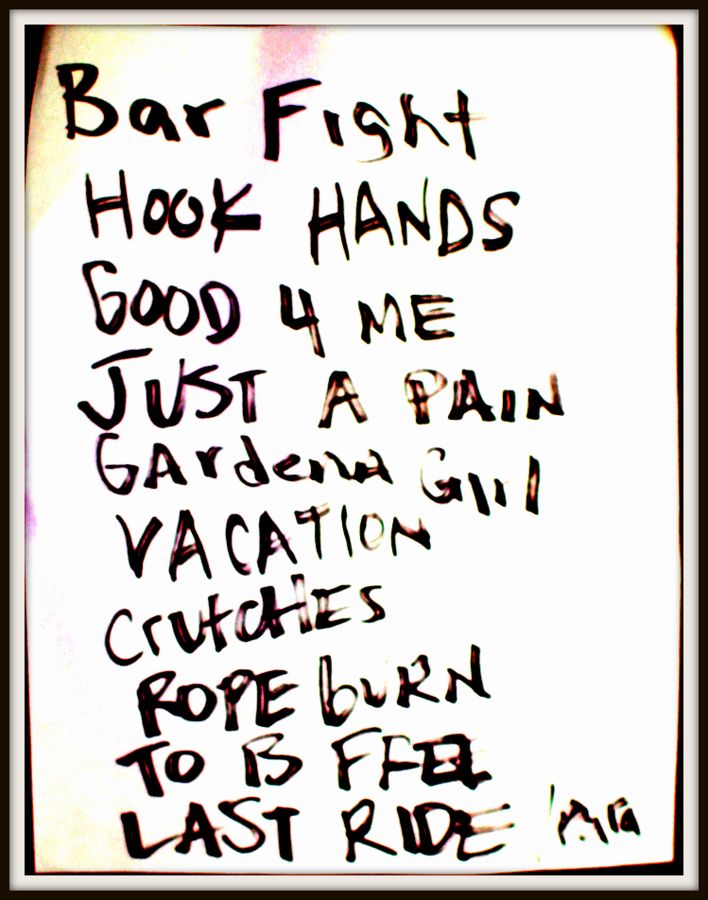 Bar Fight
HOOK HANDS
GOOD 4 ME
JUST A PAIN
GArdena Girl
VACATION
CrutcHES
ROPE buRN
TO B
LAST RIDE